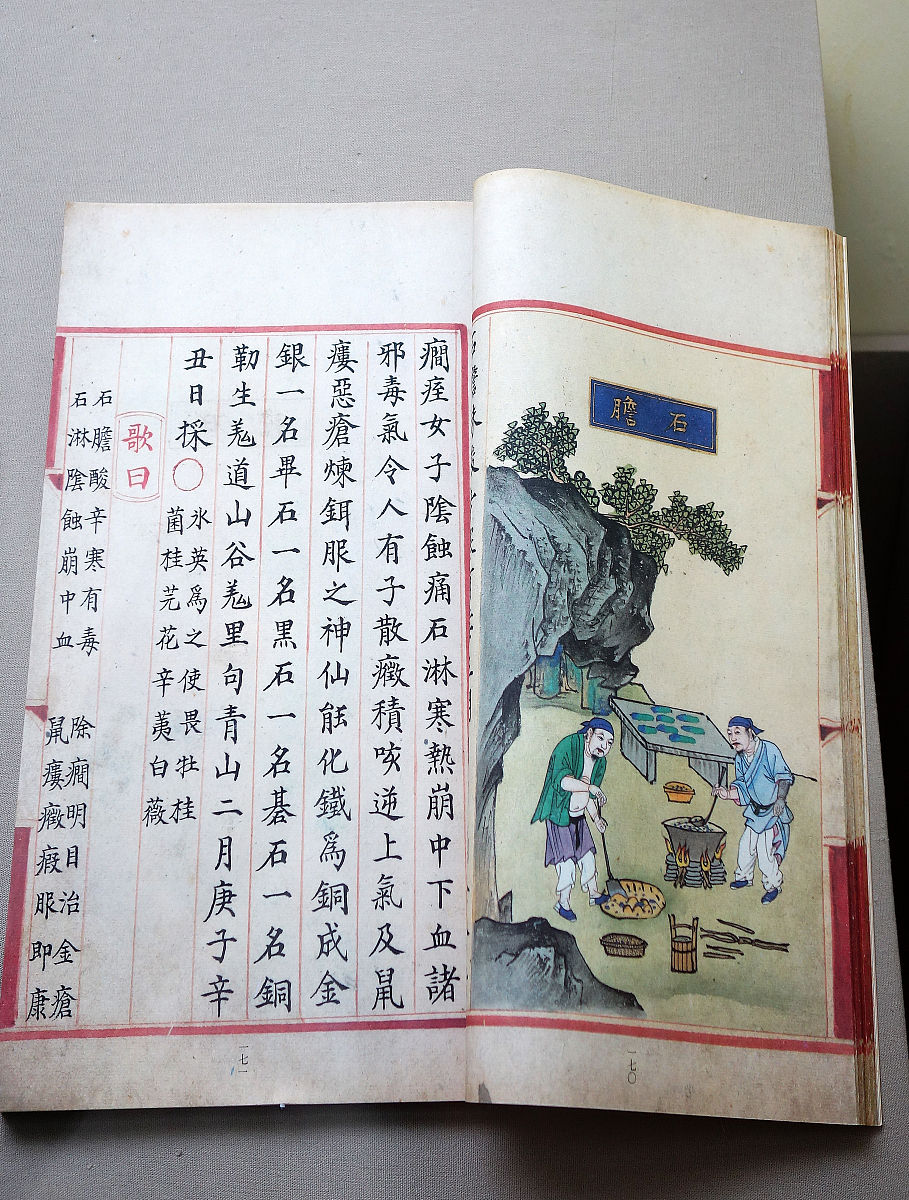 石膽
一七〇
癎痓女子陰蝕痛石淋寒熱崩中下血諸
邪毒氣令人有子散癥積咳逆上氣及鼠
瘻惡瘡煉餌服之神仙能化鐵爲銅成金
銀一名畢石一名黑石一名碁石一名銅
勒生羌道山谷羌里句青山二月庚子辛
丑日採〇
水英爲之使畏牡桂
菌桂芫花辛夷白薇
歌曰
石膽酸辛寒有毒 除癎明目治金瘡
石淋陰蝕崩中血 鼠瘻癥瘕服即康
一七一